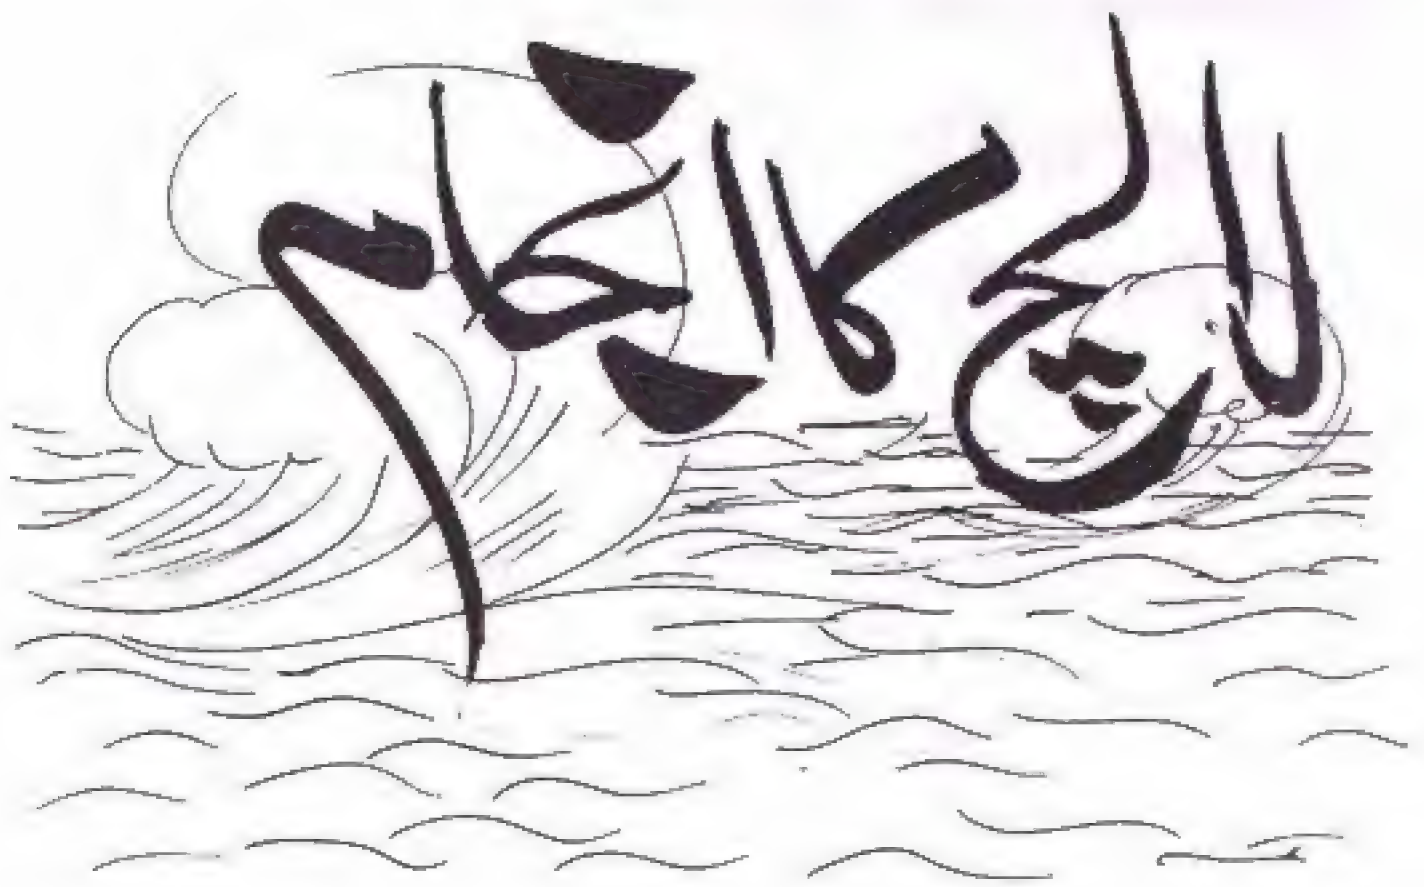 لالچ کا انجام